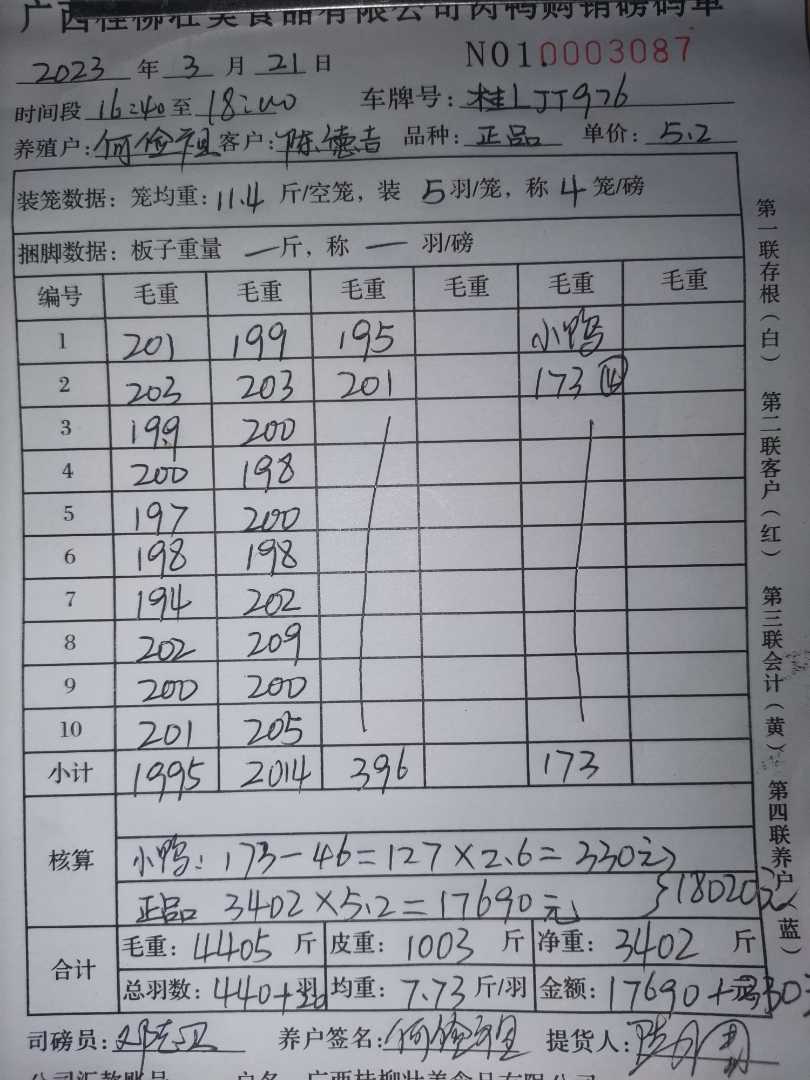 广西桂柳壮美食品有限公司肉鸭购销磅码单
NO1.0003087
2023 年 3 月 21 日
时间段 16:40 至 18:00 车牌号: 桂LJJ976
养殖户: 何俭祖 客户: 陈德吉 品种: 正品 单价: 5.2
装笼数据: 笼均重: 11.4 斤/空笼, 装 5 羽/笼, 称 4 笼/磅
捆脚数据: 板子重量 一 斤, 称 一 羽/磅
编号 毛重 毛重 毛重 毛重 毛重 毛重
1 201 199 195 小鸭
2 203 203 201 173 ⑭
3 199 200
4 200 198
5 197 200
6 198 198
7 194 202
8 202 209
9 200 200
10 201 205
小计 1995 2014 396 173
核算
小鸭: 173-46=127×2.6=330元
正品 3402×5.2=17690元 }18020元
合计
毛重: 4405 斤 皮重: 1003 斤 净重: 3402 斤
总羽数: 440+ 羽 均重: 7.73 斤/羽 金额: 17690+330
司磅员: 养户签名: 何俭祖 提货人:
第一联存根(白) 第二联客户(红) 第三联会计(黄) 第四联养户(蓝)